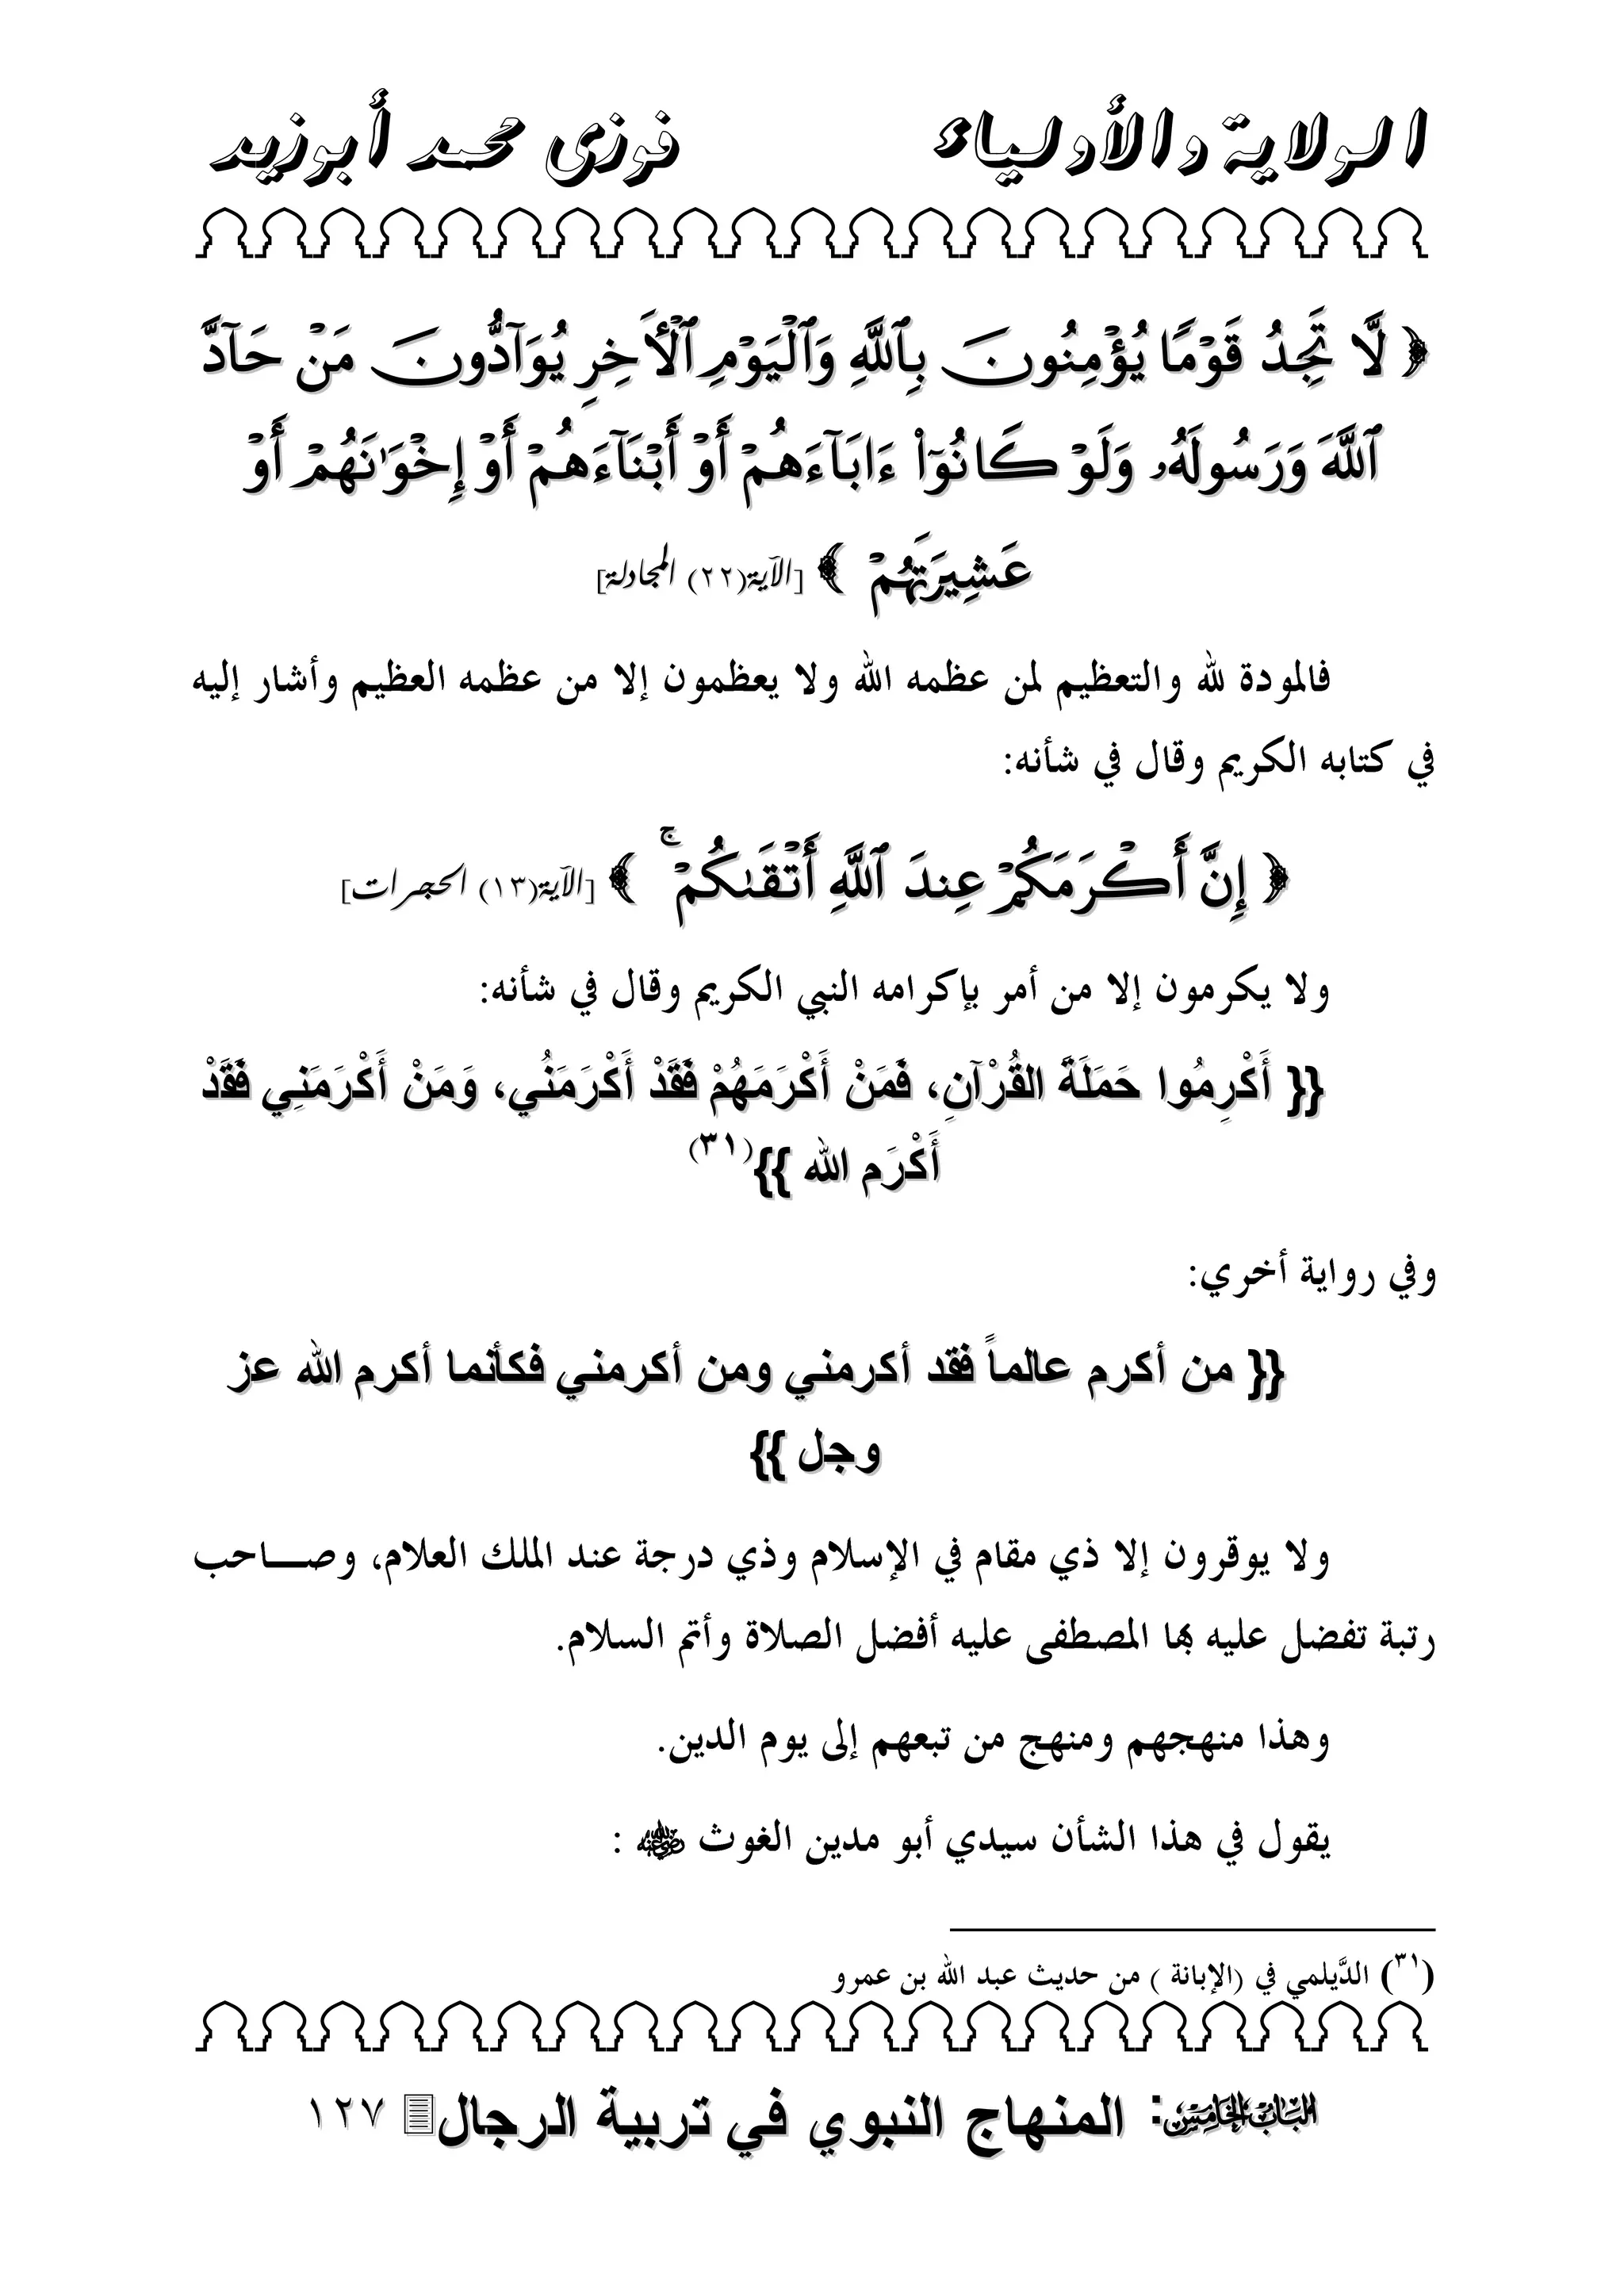 الولاية والأولياء فوزى محمد أبوزيد
﴿ لَّا تَجِدُ قَوْمًا يُؤْمِنُونَ بِٱللَّهِ وَٱلْيَوْمِ ٱلْأَخِرِ يُوَآدُّونَ مَنْ حَآدَّ
ٱللَّهَ وَرَسُولَهُۥ وَلَوْ كَانُوٓا۟ ءَابَآءَهُمْ أَوْ أَبْنَآءَهُمْ أَوْ إِخْوَٰنَهُمْ أَوْ
عَشِيرَتَهُمْ ﴾ [الآية(٢٢) المجادلة]
فالمودة لله والتعظيم لمن عظمه الله ولا يعظمون إلا من عظمه العظيم وأشار إليه
في كتابه الكريم وقال في شأنه:
﴿ إِنَّ أَكْرَمَكُمْ عِندَ ٱللَّهِ أَتْقَىٰكُمْ ۚ ﴾ [الآية(١٣) الحجرات]
ولا يكرمون إلا من أمر بإكرامه النبي الكريم وقال في شأنه:
{{ أَكْرِمُوا حَمَلَةَ القُرْآنِ، فَمَنْ أَكْرَمَهُمْ فَقَدْ أَكْرَمَنُي، وَمَنْ أَكْرَمَنِي فَقَدْ
أَكْرَم الله }}(٣١)
وفي رواية أخري:
{{ من أكرم عالماً فقد أكرمني ومن أكرمني فكأنما أكرم الله عز
وجل }}
ولا يوقرون إلا ذي مقام في الإسلام وذي درجة عند الملك العلام، وصـــاحب
رتبة تفضل عليه بها المصطفى عليه أفضل الصلاة وأتم السلام.
وهذا منهجهم ومنهج من تبعهم إلى يوم الدين.
يقول في هذا الشأن سيدي أبو مدين الغوث رضي الله عنه :
(٣١) الدَّيلمي في (الإبانة ) من حديث عبد الله بن عمرو
الباب الخامس: المنهاج النبوي في تربية الرجال ١٢٧